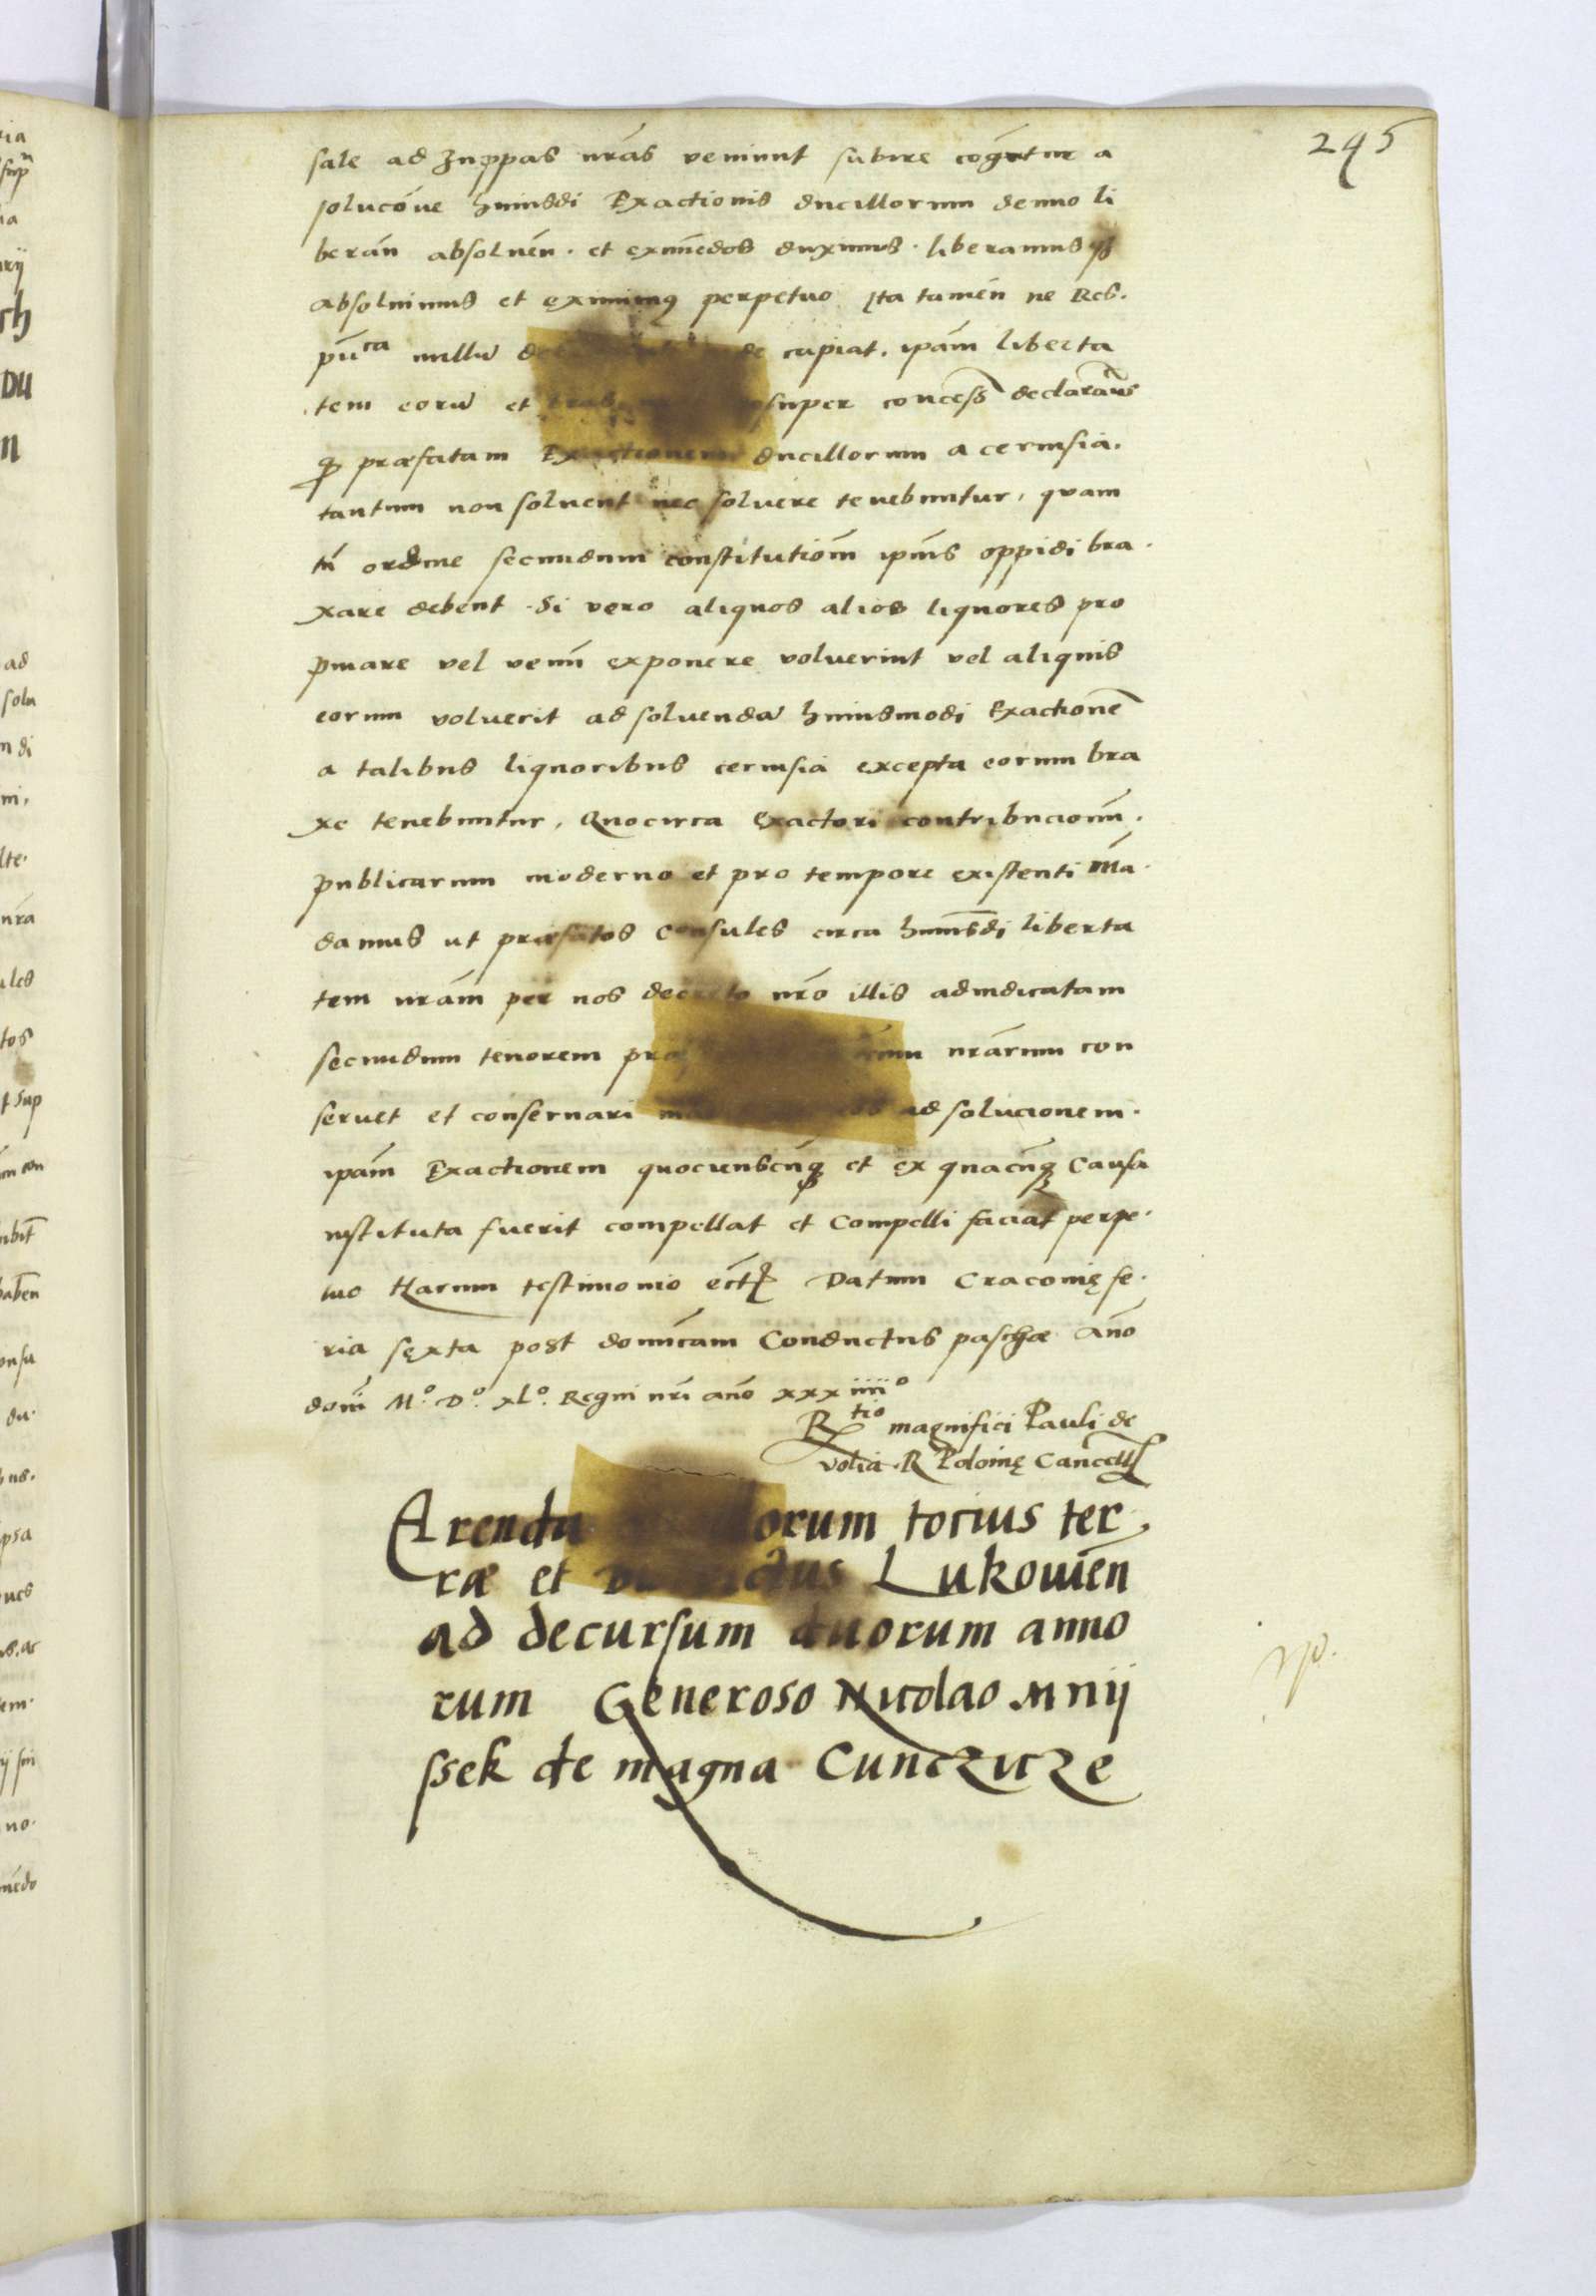 295
sale ad Zuppas nr̃as veniunt subire cogũtur a
soluc̃oue huiusdi Exactionis ducillorum denuo li
berañ absolueñ. et eximẽdos duximus. liberamusqȝ
absoluimus et eximimqȝ perpetuo Ita tamen ne Res.
pũca nullũ capiat. ipam̃ liberta
tem eorũ et super concess̃ declaram̃us
qȝ præfatam Exactionem ducillorum a ceruisia.
tantum non soluent nec soluere tenebuntur, quam
tũ ordine secundum constitutiom̃ ipiũs oppidi bra.
xare debent. Si vero aliquos alios liquores pro
pinare vel venũ exponere voluerint vel aliquis
eorum voluerit ad soluendã huiusmodi Exactionẽ
a talibus liquoribus ceruisia excepta eorum bra
xe tenebuntur, Quocirca Exactori contribucionũ.
publicarum moderno et pro tempore existenti mã.
damus ut præfatos Consules circa huiusdi liberta
tem nrãm per nos decreto nrõ illis adiudicatam
secundum tenorem nrãrum con
seruet et conseruari ad solucionem.
ipam̃ Exactionem quociensc̃uqȝ et ex quac̃uqȝ Causa
instituta fuerit compellat et Compelli faciat perpe.
tuo Harum testimonio ect̃ Datum Cracouię fe.
ria sexta post domĩcam Conductus paschæ Añõ
domĩ M.º D.º xl.º Regni nrĩ anõ xxx iiiiº
R tio magnifici Pauli de
volia. R Polonię Canc̃ell
Arenda orum tocius ter.
ræ et Districtus Lukouieñ
ad decursum duorum anno
rum Generoso Nicolao Mnij
ssek de magna Cunczicze